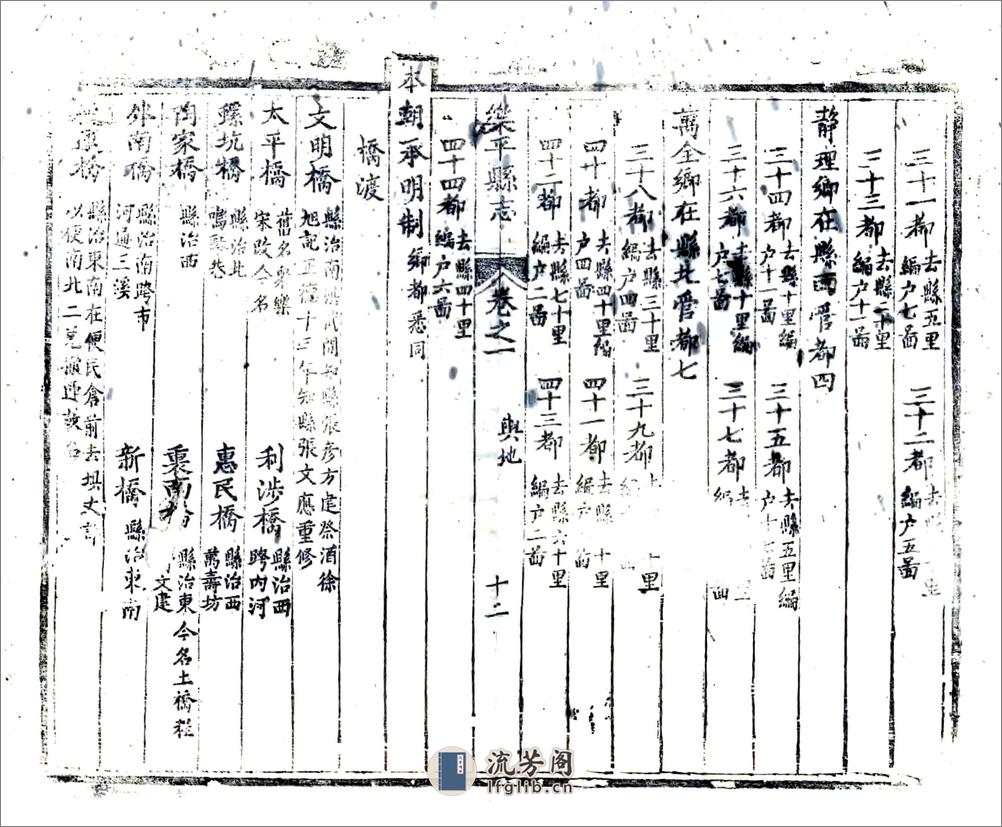 三十一都 去縣五里編户七啚 三十二都 去縣 里編户五啚
三十三都 去縣二十里編户十一啚
靜理鄉在縣西管都四
三十四都 去縣十里編户十一啚 三十五都 去縣五里編户十 啚
三十六都 去縣十里編户七啚 三十七都 編 啚
萬全鄉在縣北管都七
三十八都 去縣三十里編户四啚 三十九都 里
四十都 去縣四十里編户四啚 四十一都 去縣 十里編户 啚
四十二都 去縣七十里編户二啚 四十三都 去縣六十里編户二啚
樂平縣志 卷之一 輿地 十二
四十四都 去縣四十里編户六啚
本朝承明制鄉都悉同
橋渡
文明橋 縣治南 武間知縣張彥方建祭酒徐旭記正德十三年知縣張文應重修
太平橋 舊名 樂宋改今名 利涉橋 縣治西跨内河
縣治北鳴 巷 惠民橋 縣治西萬壽坊
陶家橋 縣治西 裏南橋 縣治東今名土橋程 文建
外南橋 縣治南跨市河通三溪 新橋 縣治東南
橋 縣治東南在便民倉前去 丈許以便南北二 故名
流芳阁
lfglib.cn